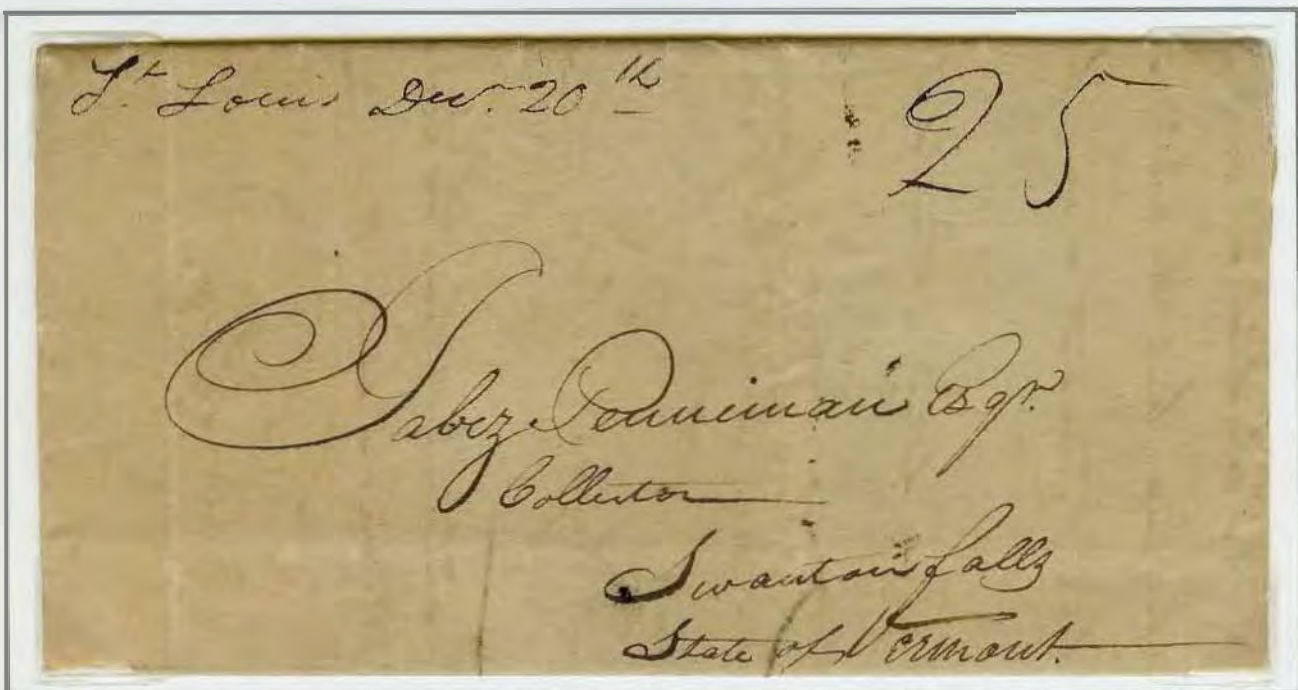 St. Louis Dec. 20th
25
Jabez Penniman Esqr.
Collector
Swanton falls
State of Vermont.